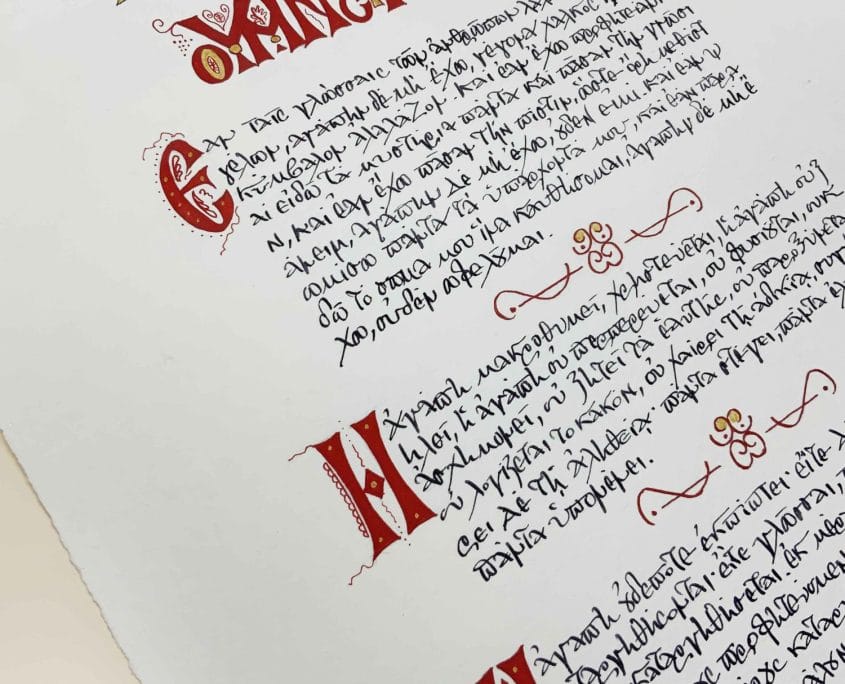 Ἐὰν ταῖς γλώσσαις τῶν ἀνθρώπων λα
γέλων, ἀγάπην δὲ μὴ ἔχω, γέγονα χαλκὸς
κύμβαλον ἀλαλάζον. καὶ ἐὰν ἔχω προφητείαν
αὶ εἰδῶ τὰ μυστήρια πάντα καὶ πᾶσαν τὴν γνῶσι
ν, καὶ ἐὰν ἔχω πᾶσαν τὴν πίστιν, ὥστε ὄρη μεθιστ
άνειν, ἀγάπην δὲ μὴ ἔχω, οὐδέν εἰμι. καὶ ἐὰν ψ
ωμίσω πάντα τὰ ὑπάρχοντά μου, καὶ ἐὰν παρα
δῶ τὸ σῶμά μου ἵνα καυθήσομαι, ἀγάπην δὲ μὴ ἔ
χω, οὐδὲν ὠφελοῦμαι.
Ἡ ἀγάπη μακροθυμεῖ, χρηστεύεται, ἡ ἀγάπη οὐ ζ
ηλοῖ, ἡ ἀγάπη οὐ περπερεύεται, οὐ φυσιοῦται, οὐκ
ἀσχημονεῖ, οὐ ζητεῖ τὰ ἑαυτῆς, οὐ παροξύνεται
οὐ λογίζεται τὸ κακόν, οὐ χαίρει τῇ ἀδικίᾳ, συγ
ρει δὲ τῇ ἀληθείᾳ· πάντα στέγει, πάντα
πάντα ὑπομένει.
ἀγάπη οὐδέποτε ἐκπίπτει· εἴτε
ταργηθήσονται· εἴτε γλῶσσαι,
καταργηθήσεται ἐκ μερ
προφητεύομεν
καταρ